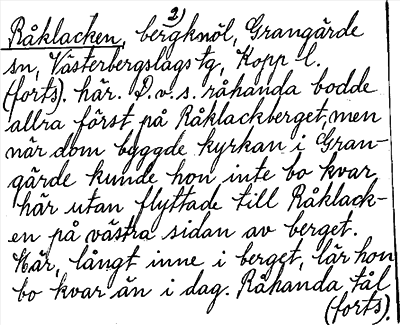 2)
Råklacken, bergknöl, Grangärde
sn, Västerbergslags tg, Kopp. l.
(forts). här. D.v.s. råhanda bodde
allra först på Råklackberget, men
när dom byggde kyrkan i Gran-
gärde kunde hon inte bo kvar
här utan flyttade till Råklack-
en på västra sidan av berget.
Här, långt inne i berget, lär hon
bo kvar än i dag. Råhanda tål
(forts).